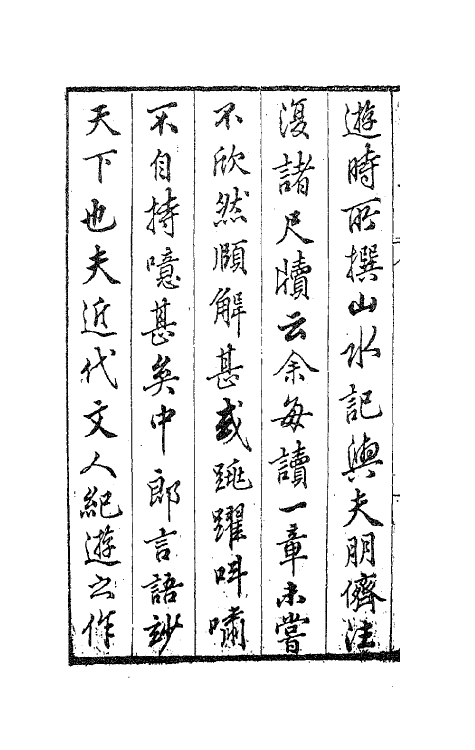 遊時所撰山水記與夫朋儕往
復諸尺牘云余每讀一章未嘗
不欣然頤解甚或跳躍呌嘯
不自持噫甚矣中郎言語妙
天下也夫近代文人紀遊之作